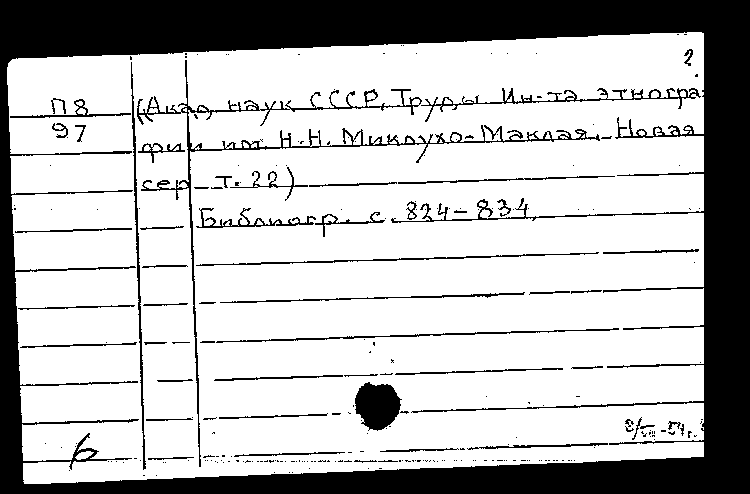 2.
П8
97
(Акад. наук СССР, Труды Ин-та этногра-
фии им. Н.Н. Миклухо-Маклая. Новая
сер. т. 22)
Библиогр. с. 824-834.
8/VII-54г.
б